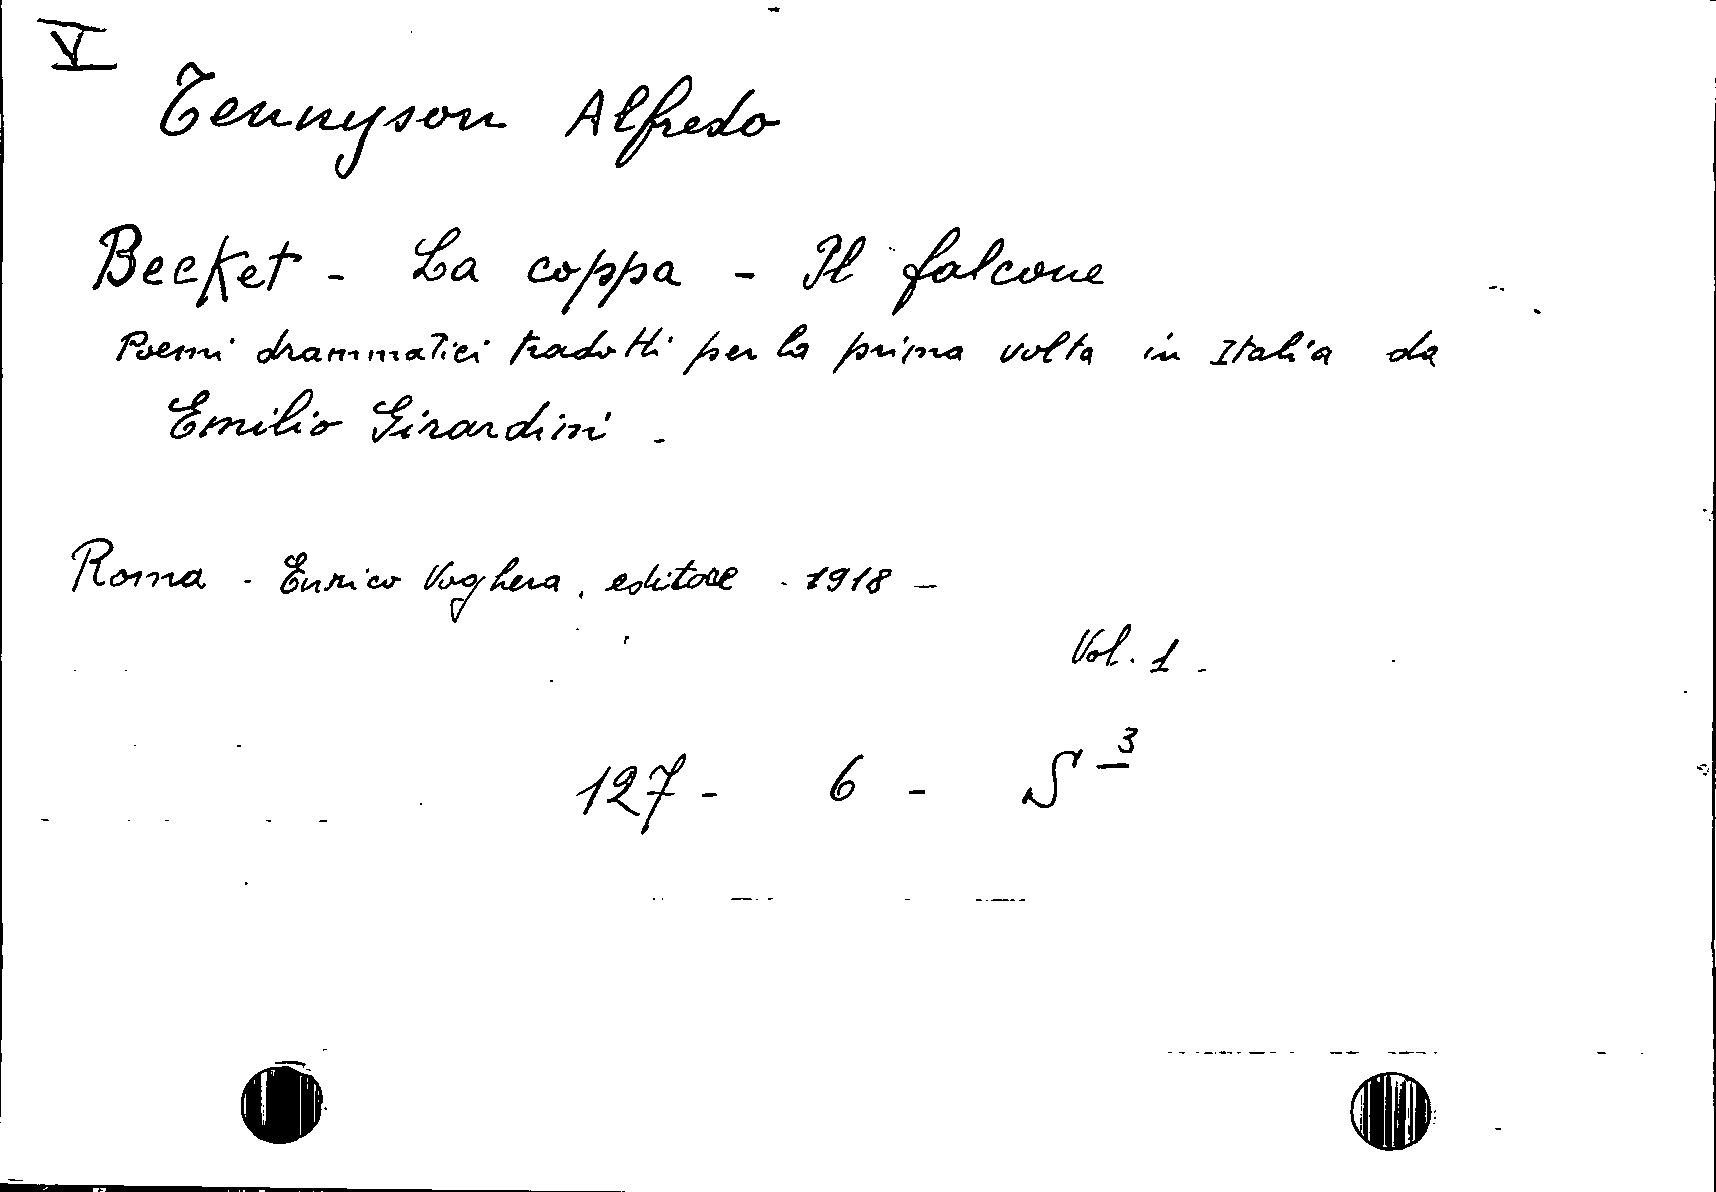 V
Tennyson Alfredo
Becket - La coppa - Il falcone
Poemi drammatici tradotti per la prima volta in Italia da
Emilio Girardini -
Roma - Enrico Voghera, editore - 1918 -
Vol. 1 -
127 - 6 - S 3